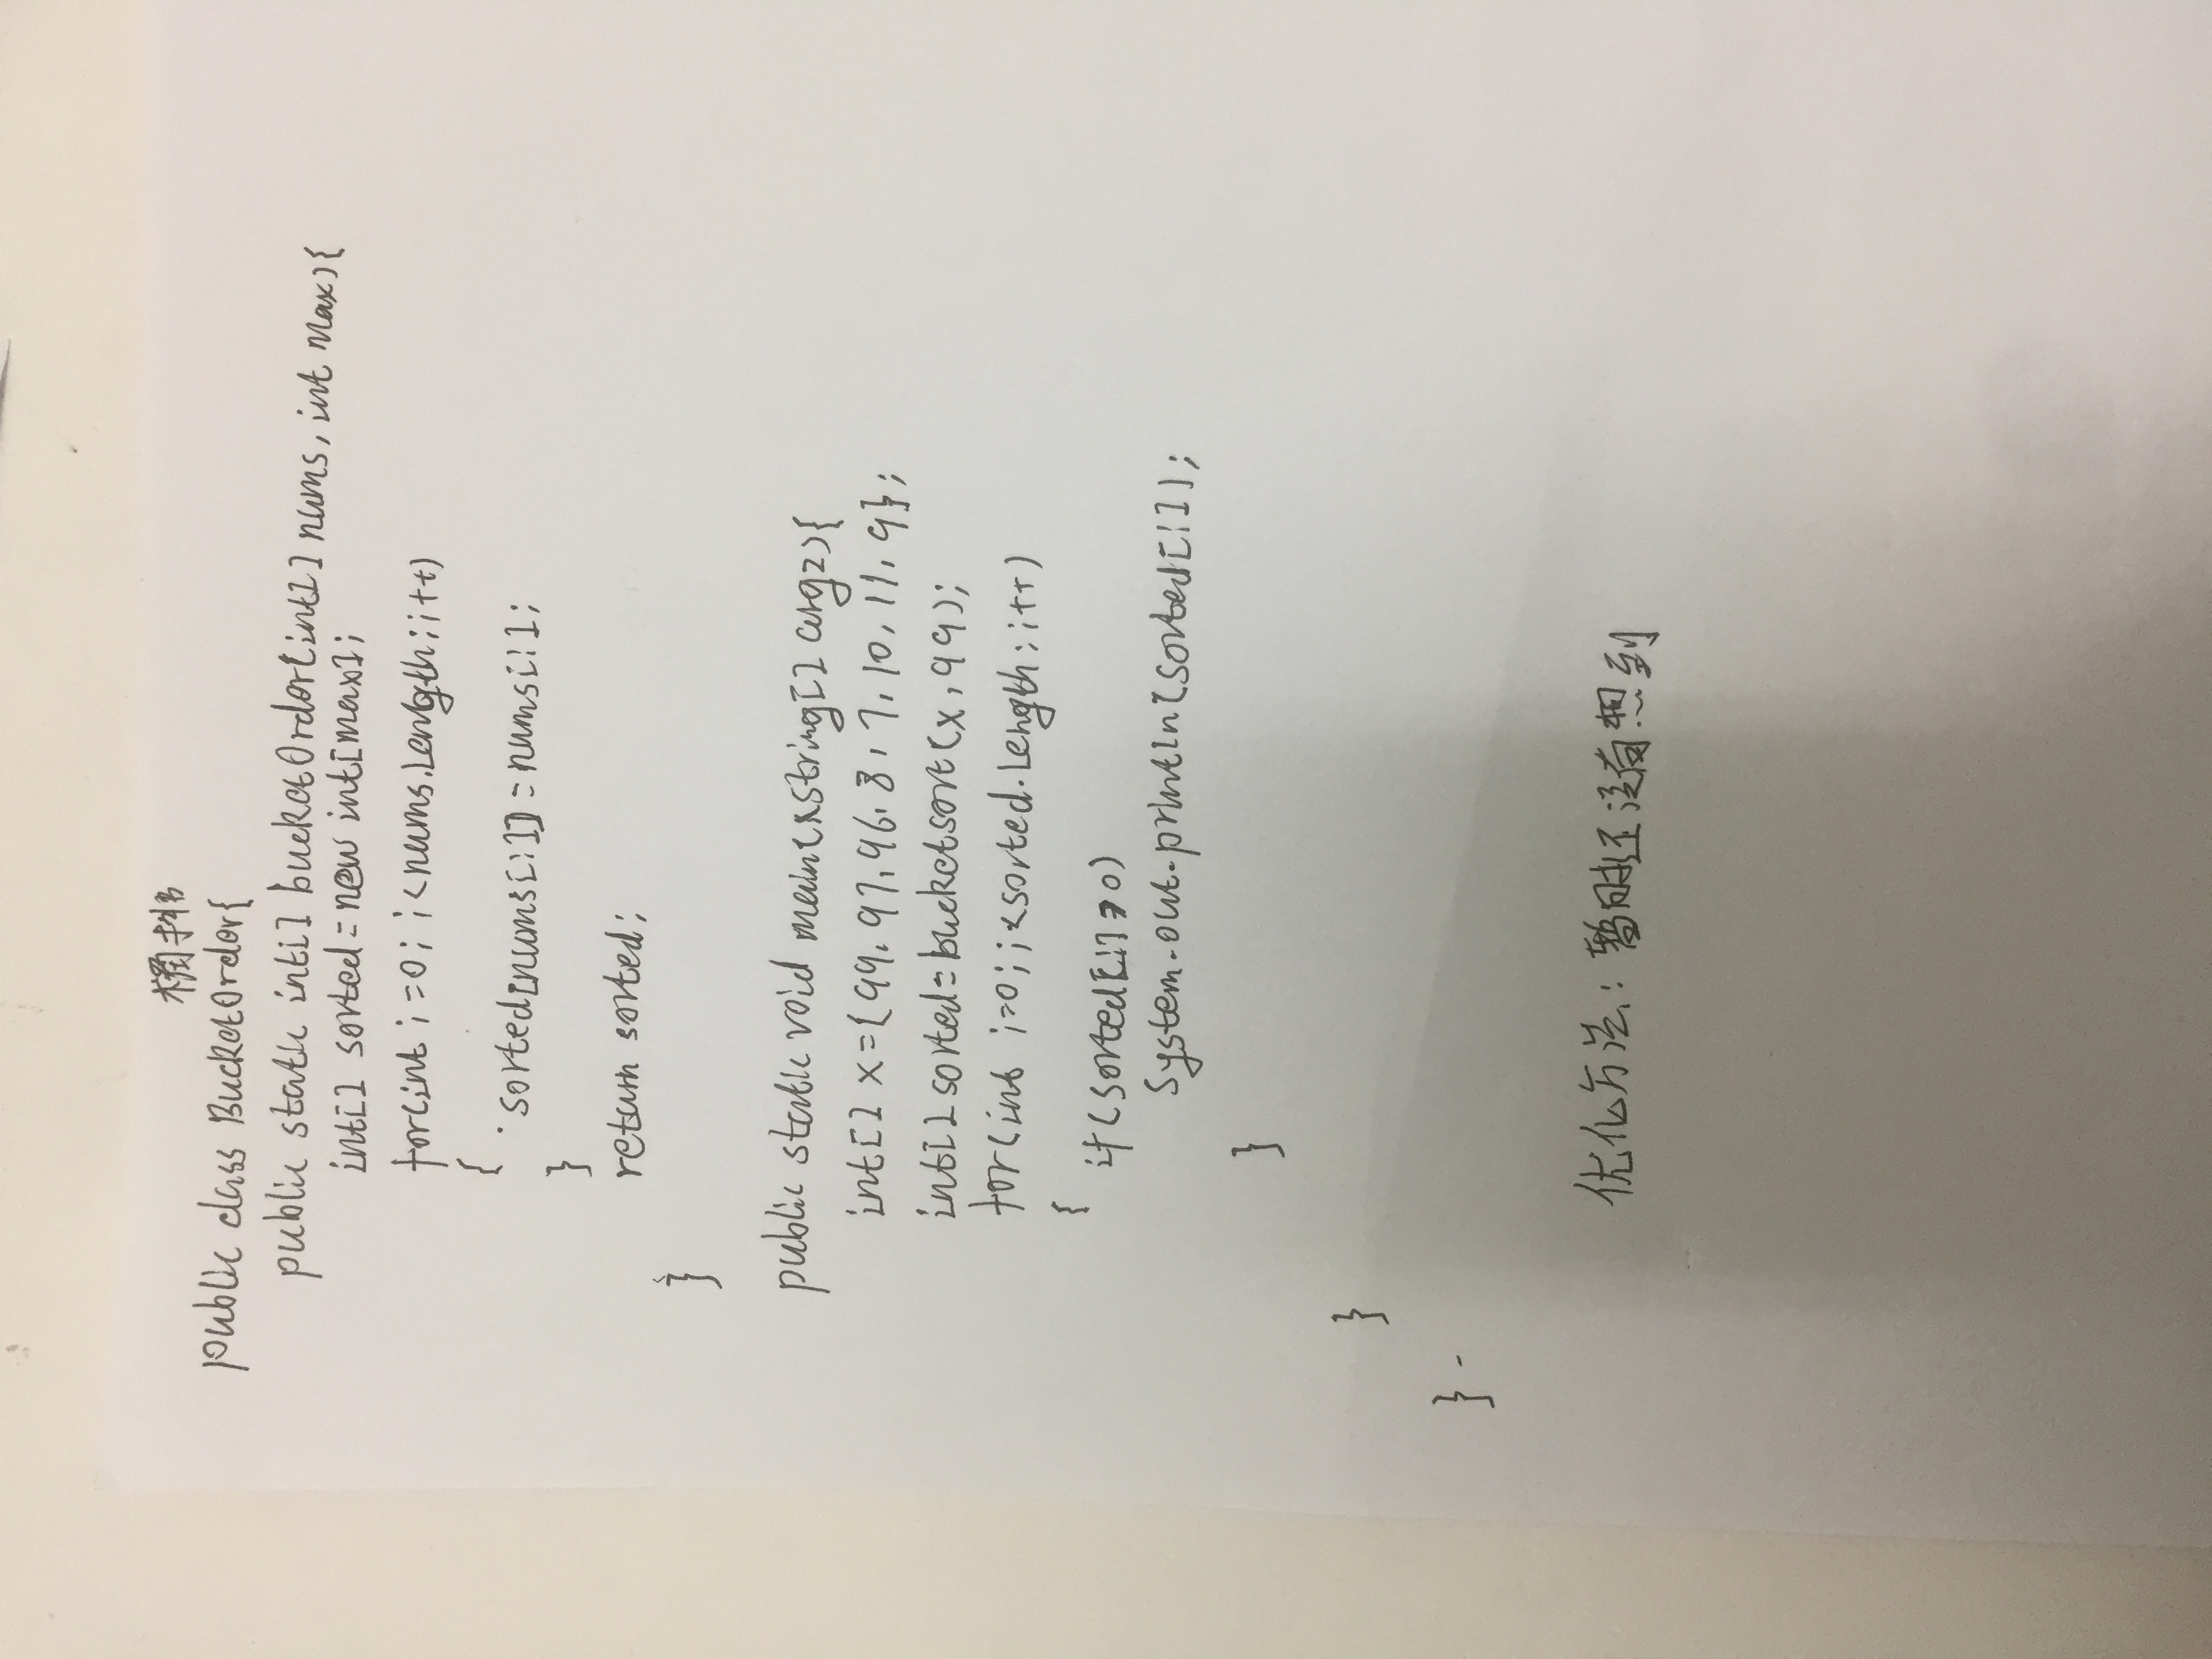 桶排
public class BucketOrder{
public static int[] bucketOrder(int[] nums, int max){
int[] sorted=new int[max];
for(int i=0; i<nums.Length;i++)
{
sorted[nums[i]]=nums[i];
}
return sorted;
}
public static void main(String[] args){
int[] x={99,97,96,8,7,10,11,9};
int[] sorted=bucketsort(x,99);
for(int i=0;i<sorted.Length;i++)
{
if(sorted[i]>0)
System.out.println(sorted[i]);
}
}
}
优化方法:暂时还没有想到